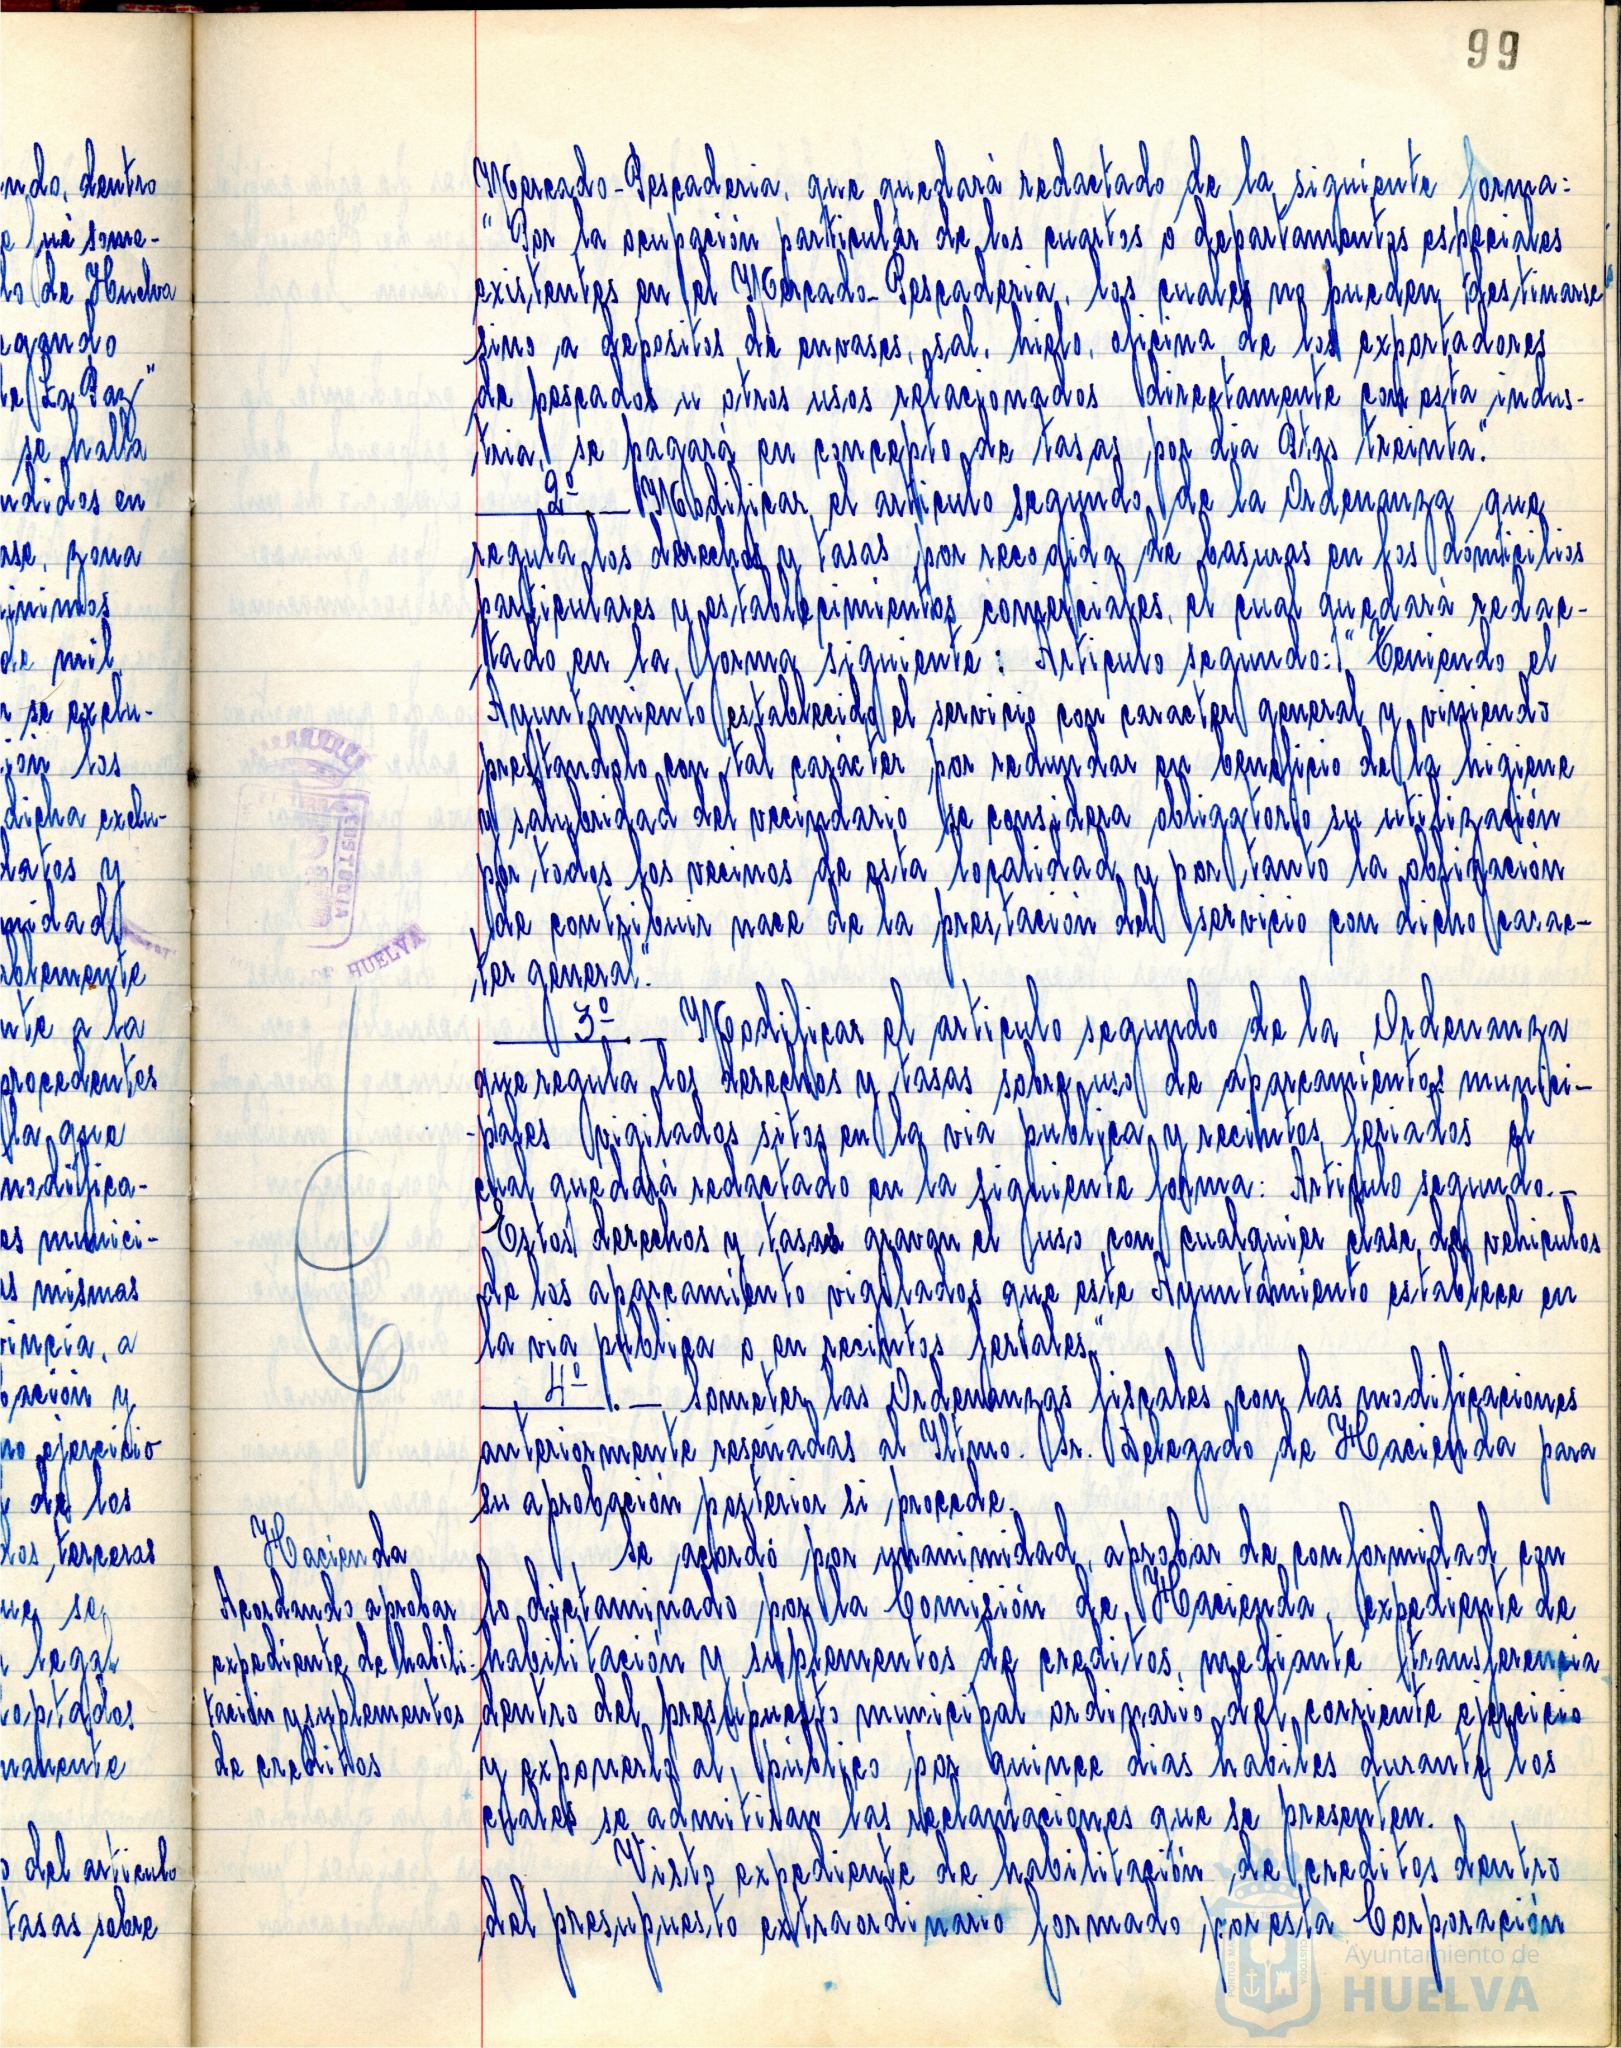 99
ndo, dentro
e fué some-
lo de Huelva
gando
te La Paz"
se halla
ndidos en
ase, zona
inimos
de mil
r se exclu-
ión los
dicha exclu-
datos y
midad
ablemente
nte a la
procedentes
la que
modifica-
es munici-
as mismas
vincia, a
bación y
no ejercicio
y de los
dos, terceras
ue se
a legal
optados
mamente
o del articulo
tasas sobre
Mercado-Pescaderia, que quedará redactado de la siguiente forma:
"Por la ocupación particular de los cuartos o departamentos especiales
existentes en el Mercado-Pescaderia, los cuales no pueden destinarse
sino a depositos de envases, sal, hielo, oficina de los exportadores
de pescados u otros usos relacionados directamente con esta indus-
tria, se pagará en concepto de tasas por dia Ptas treinta."
2º.- Modificar el articulo segundo de la Ordenanza que
regula los derechos y tasas por recogida de basuras en los domicilios
particulares y establecimientos comerciales, el cual quedará redac-
tado en la forma siguiente: Articulo segundo: "Teniendo el
Ayuntamiento establecido el servicio con caracter general y viniendo
prestandolo con tal carácter por redundar en beneficio de la higiene
y salubridad del vecindario se considera obligatorio su utilización
por todos los vecinos de esta localidad y por tanto la obligación
de contribuir nace de la prestación del servicio con dicho carac-
ter general."
3º.- Modificar el articulo segundo de la Ordenanza
que regula los derechos y tasas sobre uso de aparcamientos munici-
pales vigilados sitos en la via publica y recintos feriados el
cual quedará redactado en la siguiente forma: Articulo segundo.-
Estos derechos y tasas gravan el uso con cualquier clase de vehiculos
de los aparcamiento vigilados que este Ayuntamiento establece en
la via publica o en recintos feriales."
4º.- Someter las Ordenanzas fiscales con las modificaciones
anteriormente reseñadas al Iltmo. Sr. Delegado de Hacienda para
su aprobación posterior si procede.
Hacienda
Acordando aprobar
expediente de habili-
tación y suplementos
de creditos
Se acordó por unanimidad, aprobar de conformidad con
lo dictaminado por la Comisión de Hacienda, expediente de
habilitación y suplementos de creditos, mediante transferencia
dentro del presupuesto municipal ordinario del corriente ejercicio
y exponerlo al público por quince dias habiles durante los
cuales se admitiran las reclamaciones que se presenten.
Visto expediente de habilitación de creditos dentro
del presupuesto extraordinario formado por esta Corporación
CUSTODIA
HUELVA
Ayuntamiento de
HUELVA